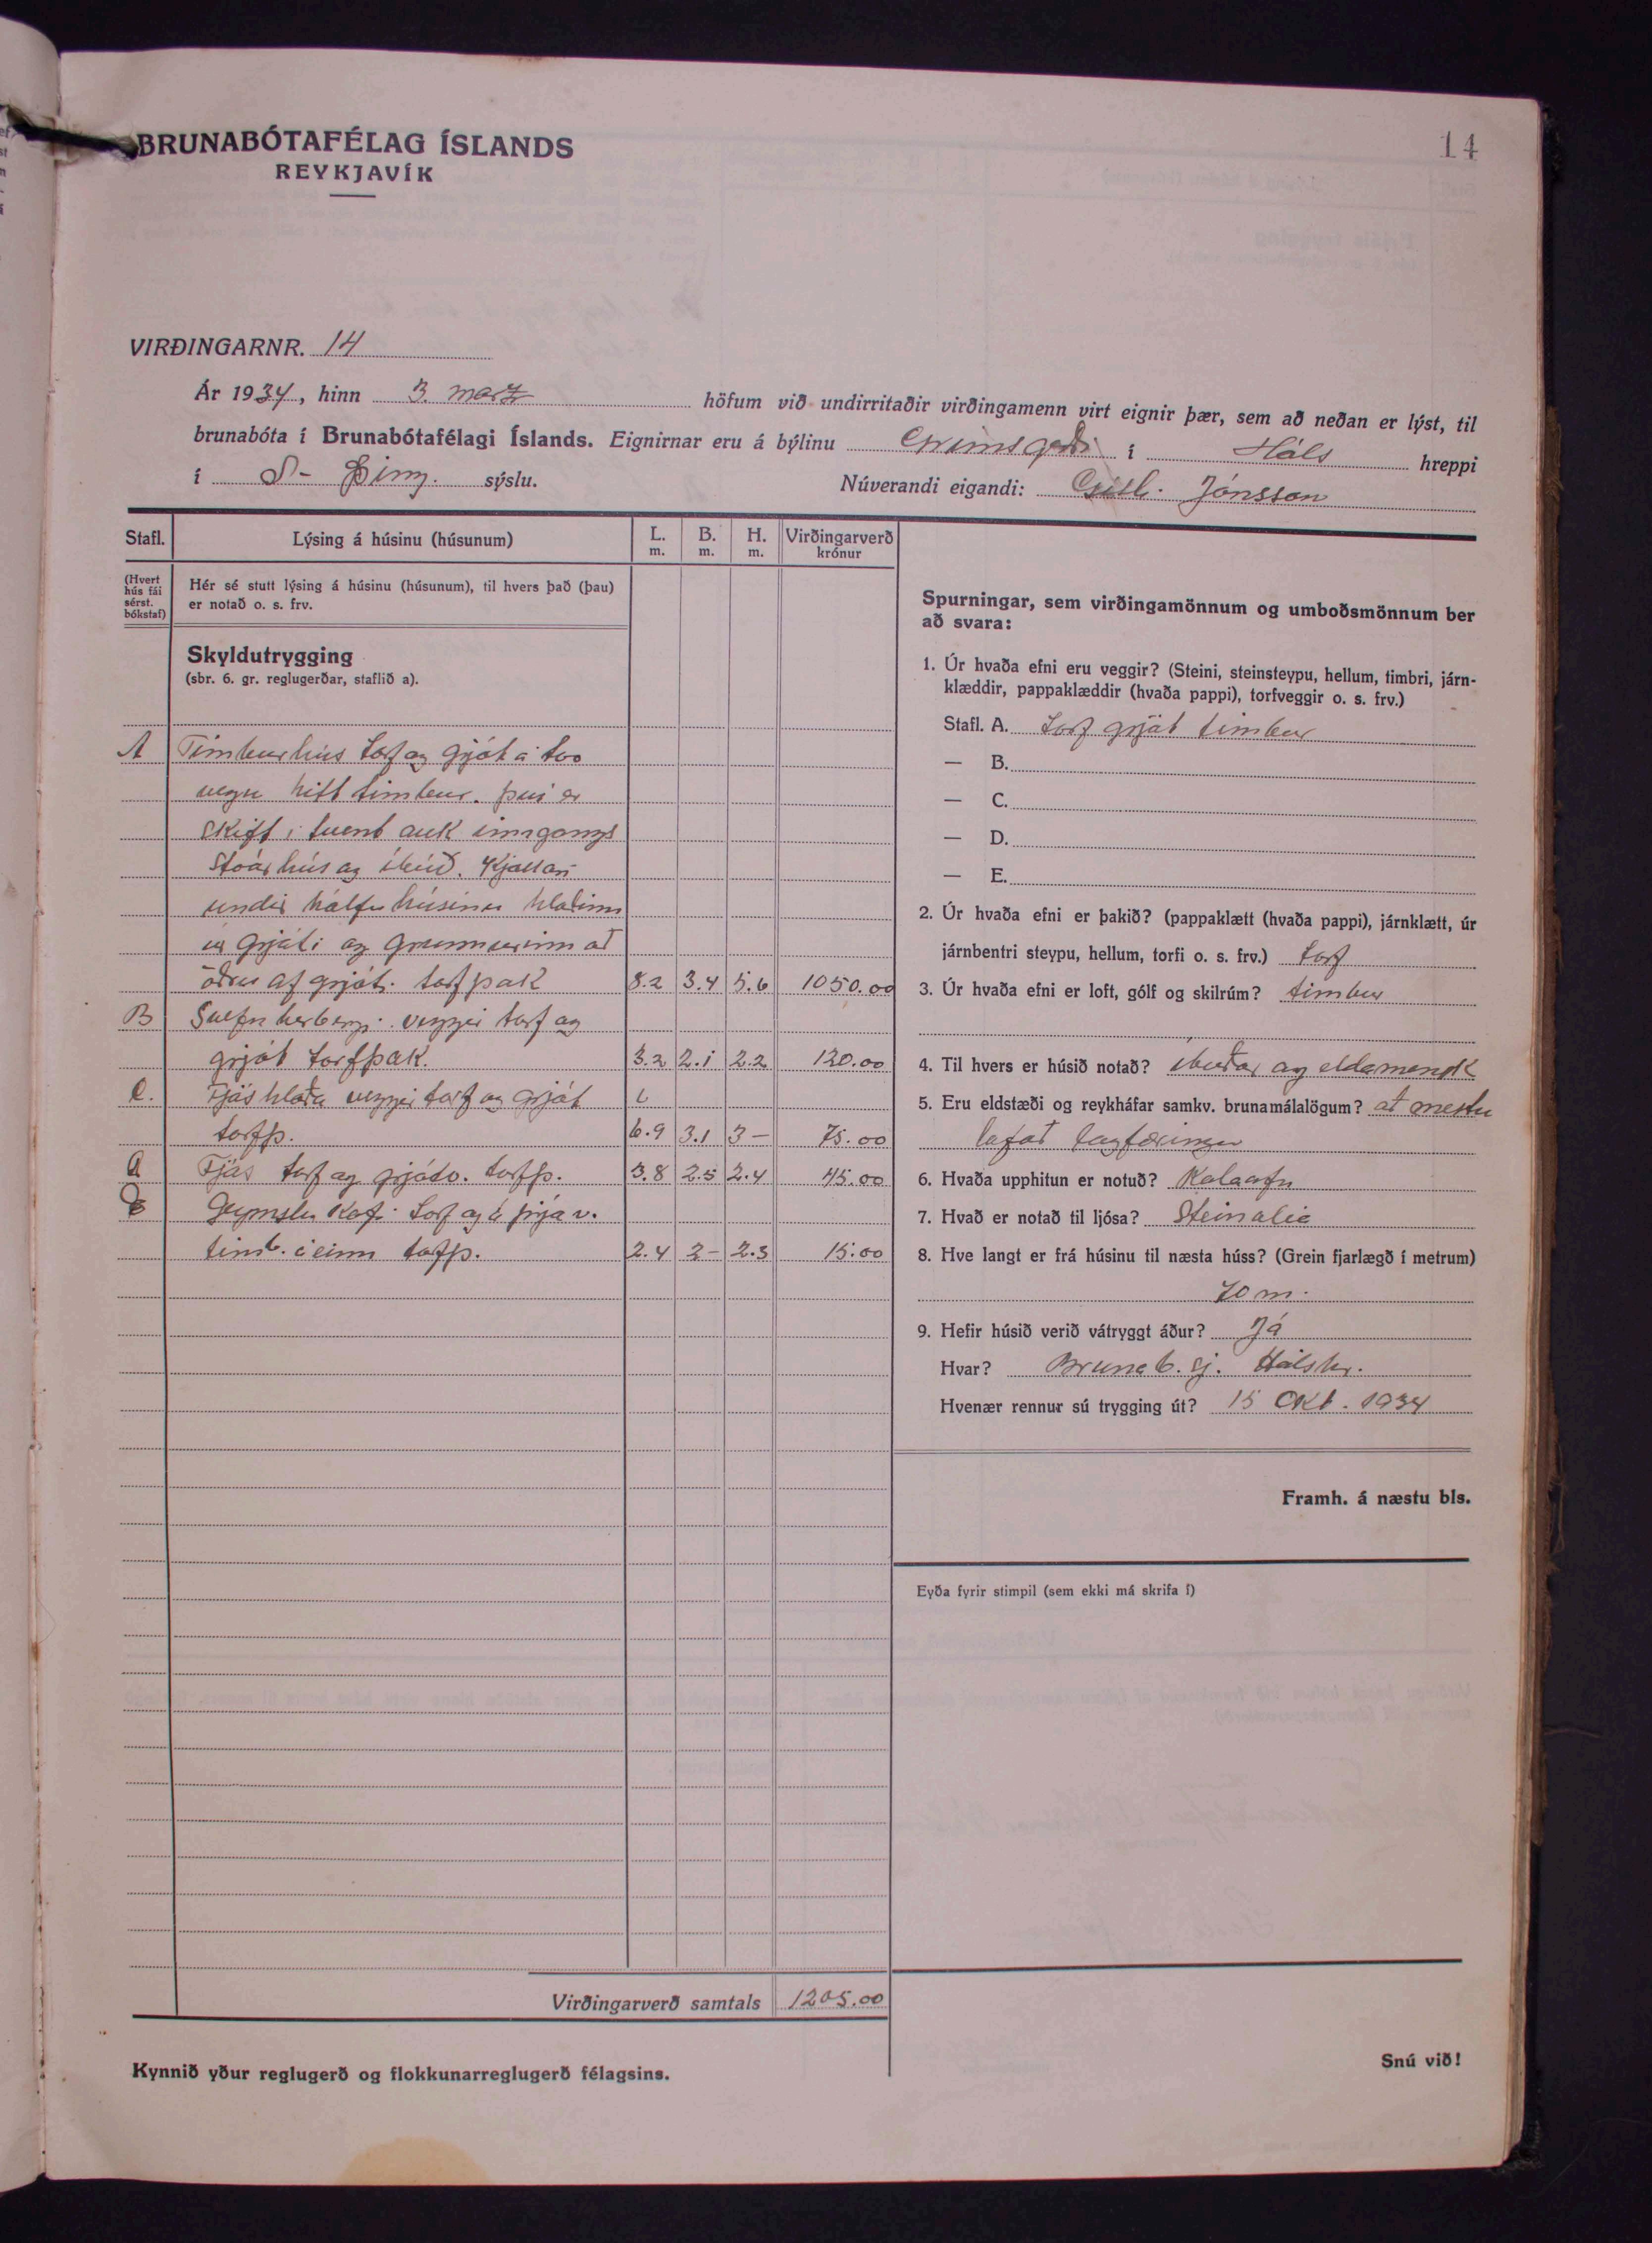 BRUNABÓTAFÉLAG ÍSLANDS
REYKJAVÍK
14
VIRÐINGARNR. 14
Ár 1934, hinn 3. marz höfum við undirritaðir virðingamenn virt eignir þær, sem að neðan er lýst, til
brunabóta í Brunabótafélagi Íslands. Eignirnar eru á býlinu Grímsgerði í Háls hreppi
í S- Þing. sýslu. Núverandi eigandi: Gísli Jónsson
Stafl. Lýsing á húsinu (húsunum) L. m. B. m. H. m. Virðingarverð krónur
(Hvert hús fái sérst. bókstaf)
Hér sé stutt lýsing á húsinu (húsunum), til hvers það (þau)
er notað o. s. frv.
Skyldutrygging
(sbr. 6. gr. reglugerðar, staflið a).
A Timburhús torf og grjót á tvo
vegu hitt timbur. því er
skift í tvent auk inngangs
Stóarhús og íbúð. Kjallari
undir hálfu húsinu hlaðinn
úr grjóti og grunnurinn að
öðru af grjóti. torfþak 8.2 3.4 5.6 1050.00
B Svefnherbergi. veggir torf og
grjót torfþak. 3.2 2.1 2.2 120.00
C. Fjós hlaða veggir torf og grjót
torfþ. 6.9 3.1 3- 75.00
Fjós torf og grjót. torfþ. 3.8 2.5 2.4 45.00
Geymslu kofi torf og á þrjá v.
timb. á einn torfþ. 2.4 2- 2.3 15.00
Virðingarverð samtals 1205.00
Kynnið yður reglugerð og flokkunarreglugerð félagsins.
Spurningar, sem virðingamönnum og umboðsmönnum ber
að svara:
1. Úr hvaða efni eru veggir? (Steini, steinsteypu, hellum, timbri, járn-
klæddir, pappaklæddir (hvaða pappi), torfveggir o. s. frv.)
Stafl. A. torf grjót timbur
— B.
— C.
— D.
— E.
2. Úr hvaða efni er þakið? (pappaklætt (hvaða pappi), járnklætt, úr
járnbentri steypu, hellum, torfi o. s. frv.) torf
3. Úr hvaða efni er loft, gólf og skilrúm? timbur
4. Til hvers er húsið notað? íbúðar og eldamensk
5. Eru eldstæði og reykháfar samkv. brunamálalögum? að mestu
lofað lagfæringu
6. Hvaða upphitun er notuð? Kolaofn
7. Hvað er notað til ljósa? Steinolía
8. Hve langt er frá húsinu til næsta húss? (Grein fjarlægð í metrum)
70 m.
9. Hefir húsið verið vátryggt áður? Já
Hvar? Brunab. sj. Hálshr.
Hvenær rennur sú trygging út? 15 Okt. 1934
Framh. á næstu bls.
Eyða fyrir stimpil (sem ekki má skrifa í)
Snú við!